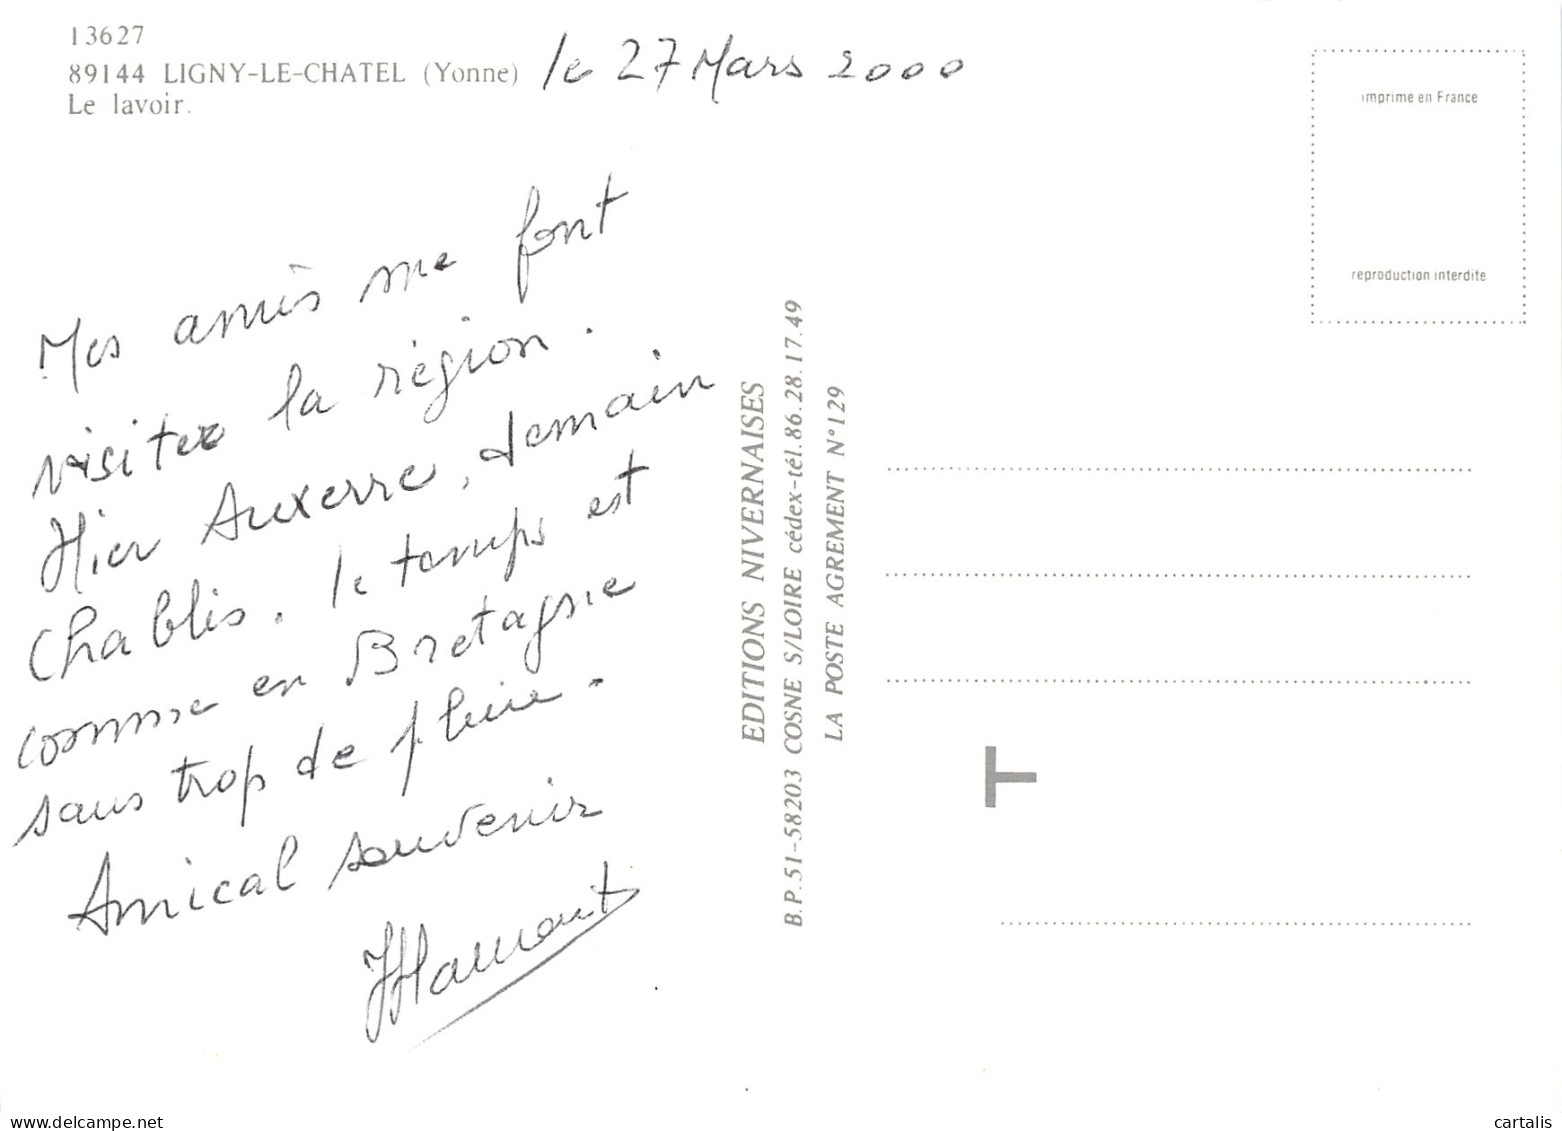 13627
89144 LIGNY-LE-CHATEL (Yonne)
Le lavoir.
le 27 Mars 2000
Mes amis me font
visiter la région.
Hier Auxerre, demain
Chablis. le temps est
comme en Bretagne
sans trop de pluie.
Amical souvenir
EDITIONS NIVERNAISES
B.P.51-58203 COSNE S/LOIRE cédex-tél.86.28.17.49
LA POSTE AGREMENT N°129
imprime en France
reproduction interdite
T
https://www.delcampe.net
cartalis